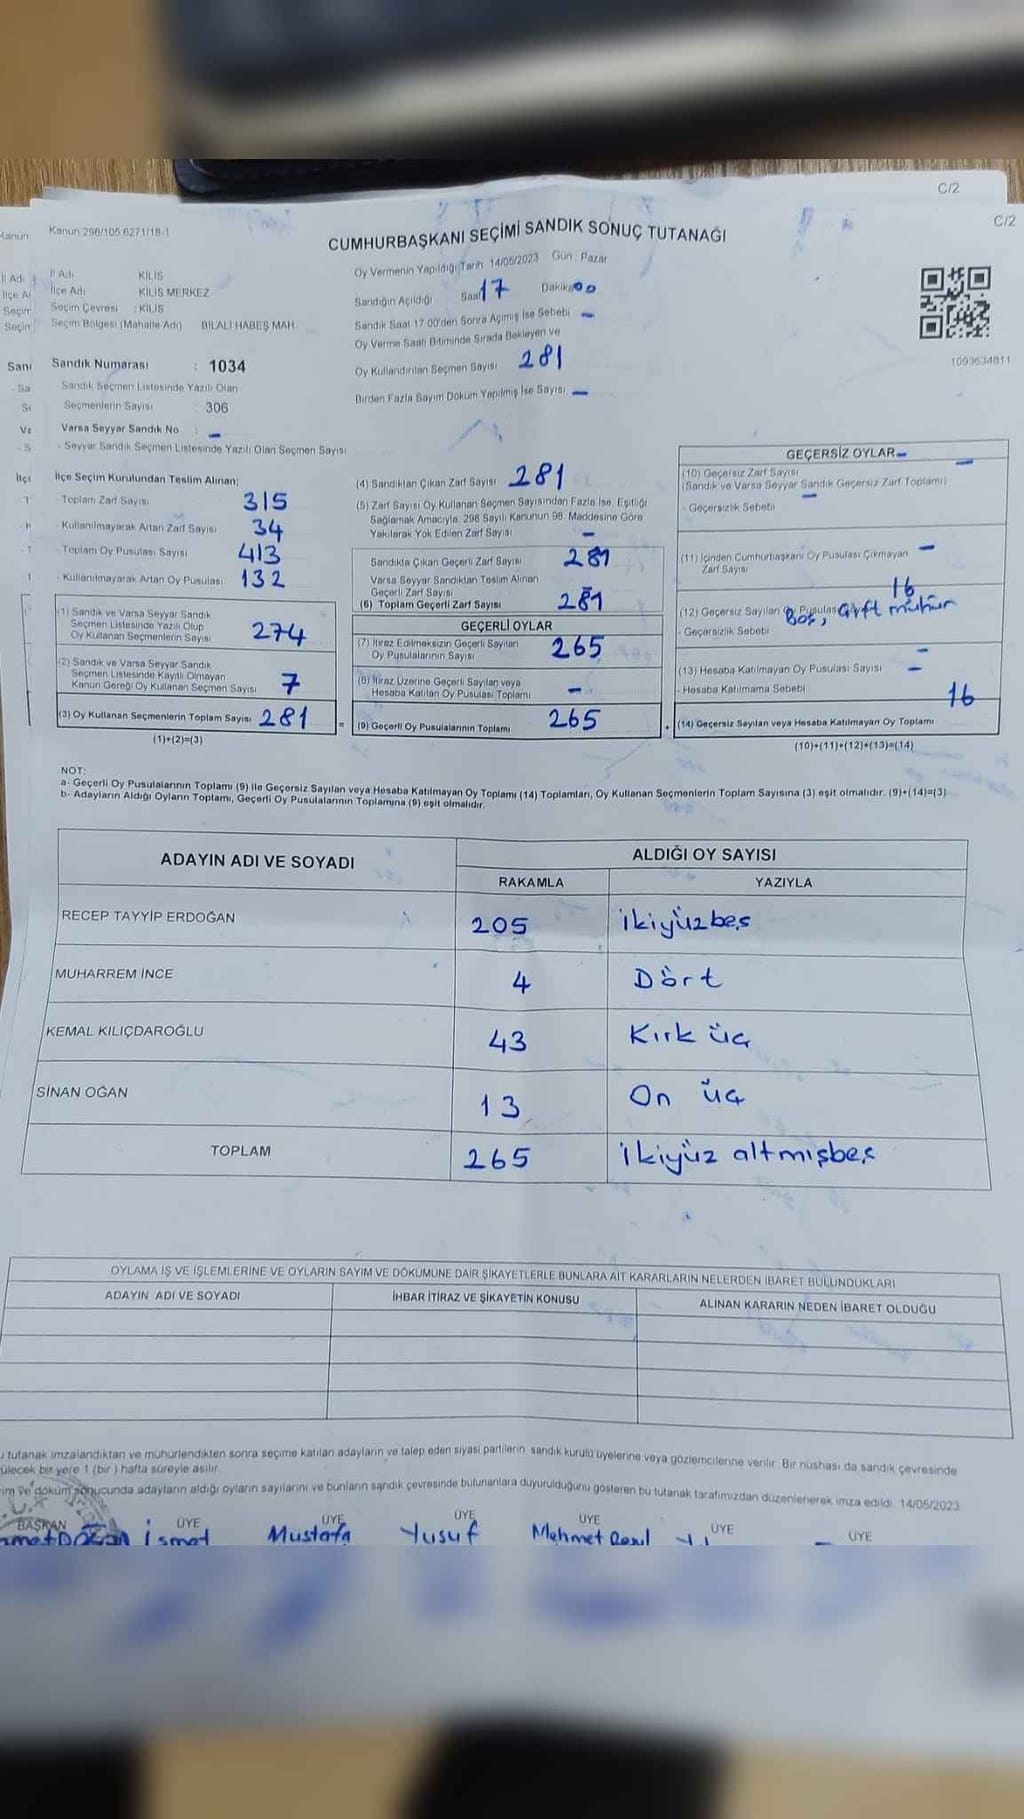 C/2
C/2
Kanun
Kanun 298/105,6271/18-1
CUMHURBAŞKANI SEÇİMİ SANDIK SONUÇ TUTANAĞI
Oy Vermenin Yapıldığı Tarih 14/05/2023 Gün : Pazar
İl Adı KİLİS
İlçe Adı KİLİS MERKEZ
Seçim Çevresi : KİLİS
Seçim Bölgesi (Mahalle Adı) BİLALİ HABEŞ MAH.
Sandığın Açıldığı Saat 17 Dakika 00
Sandık Saat 17:00'den Sonra Açımış İse Sebebi —
Oy Verme Saati Bitiminde Sırada Bekleyen ve
Oy Kullandırılan Seçmen Sayısı 281
Birden Fazla Sayım Döküm Yapılmış İse Sayısı —
1093634811
Sandık Numarası : 1034
Sandık Seçmen Listesinde Yazılı Olan
Seçmenlerin Sayısı : 306
Varsa Seyyar Sandık No : —
- Seyyar Sandık Seçmen Listesinde Yazılı Olan Seçmen Sayısı
İlçe Seçim Kurulundan Teslim Alınan;
- Toplam Zarf Sayısı 315
- Kullanılmayarak Artan Zarf Sayısı 34
- Toplam Oy Pusulası Sayısı 413
- Kullanılmayarak Artan Oy Pusulası 132
(1) Sandık ve Varsa Seyyar Sandık
Seçmen Listesinde Yazılı Olup
Oy Kullanan Seçmenlerin Sayısı 274
(2) Sandık ve Varsa Seyyar Sandık
Seçmen Listesinde Kayıtlı Olmayan
Kanun Gereği Oy Kullanan Seçmen Sayısı 7
(3) Oy Kullanan Seçmenlerin Toplam Sayısı 281
(1)+(2)=(3)
(4) Sandıktan Çıkan Zarf Sayısı 281
(5) Zarf Sayısı Oy Kullanan Seçmen Sayısından Fazla İse, Eşitliği
Sağlamak Amacıyla, 298 Sayılı Kanunun 98. Maddesine Göre
Yakılarak Yok Edilen Zarf Sayısı —
Sandıkta Çıkan Geçerli Zarf Sayısı 281
Varsa Seyyar Sandıktan Teslim Alınan
Geçerli Zarf Sayısı —
(6) Toplam Geçerli Zarf Sayısı 281
GEÇERLİ OYLAR
(7) İtiraz Edilmeksizin Geçerli Sayılan
Oy Pusulalarının Sayısı 265
(8) İtiraz Üzerine Geçerli Sayılan veya
Hesaba Katılan Oy Pusulası Toplamı —
= (9) Geçerli Oy Pusulalarının Toplamı 265
GEÇERSİZ OYLAR —
(10) Geçersiz Zarf Sayısı —
(Sandık ve Varsa Seyyar Sandık Geçersiz Zarf Toplamı)
- Geçersizlik Sebebi —
(11) İçinden Cumhurbaşkanı Oy Pusulası Çıkmayan —
Zarf Sayısı
16
(12) Geçersiz Sayılan Oy Pusulası
- Geçersizlik Sebebi Boş, Çift mühür
(13) Hesaba Katılmayan Oy Pusulası Sayısı —
- Hesaba Katılmama Sebebi —
+ (14) Geçersiz Sayılan veya Hesaba Katılmayan Oy Toplamı 16
(10)+(11)+(12)+(13)=(14)
NOT:
a- Geçerli Oy Pusulalarının Toplamı (9) ile Geçersiz Sayılan veya Hesaba Katılmayan Oy Toplamı (14) Toplamları, Oy Kullanan Seçmenlerin Toplam Sayısına (3) eşit olmalıdır. (9)+(14)=(3)
b- Adayların Aldığı Oyların Toplamı, Geçerli Oy Pusulalarının Toplamına (9) eşit olmalıdır.
ADAYIN ADI VE SOYADI ALDIĞI OY SAYISI
RAKAMLA YAZIYLA
RECEP TAYYİP ERDOĞAN 205 ikiyüzbeş
MUHARREM İNCE 4 Dört
KEMAL KILIÇDAROĞLU 43 Kırk üç
SİNAN OĞAN 13 On üç
TOPLAM 265 ikiyüz altmışbeş
OYLAMA İŞ VE İŞLEMLERİNE VE OYLARIN SAYIM VE DÖKÜMÜNE DAİR ŞİKAYETLERLE BUNLARA AİT KARARLARIN NELERDEN İBARET BULUNDUKLARI
ADAYIN ADI VE SOYADI İHBAR İTİRAZ VE ŞİKAYETİN KONUSU ALINAN KARARIN NEDEN İBARET OLDUĞU
tutanak imzalandıktan ve mühürlendikten sonra seçime katılan adayların ve talep eden siyasi partilerin sandık kurulu üyelerine veya gözlemcilerine verilir. Bir nüshası da sandık çevresinde
ülecek bir yere 1 (bir) hafta süreyle asılır.
ım ve döküm sonucunda adayların aldığı oyların sayılarını ve bunların sandık çevresinde bulunanlara duyurulduğunu gösteren bu tutanak tarafımızdan düzenlenerek imza edildi. 14/05/2023
BAŞKAN ÜYE ÜYE ÜYE ÜYE ÜYE ÜYE
İsmet Mustafa Yusuf Mehmet